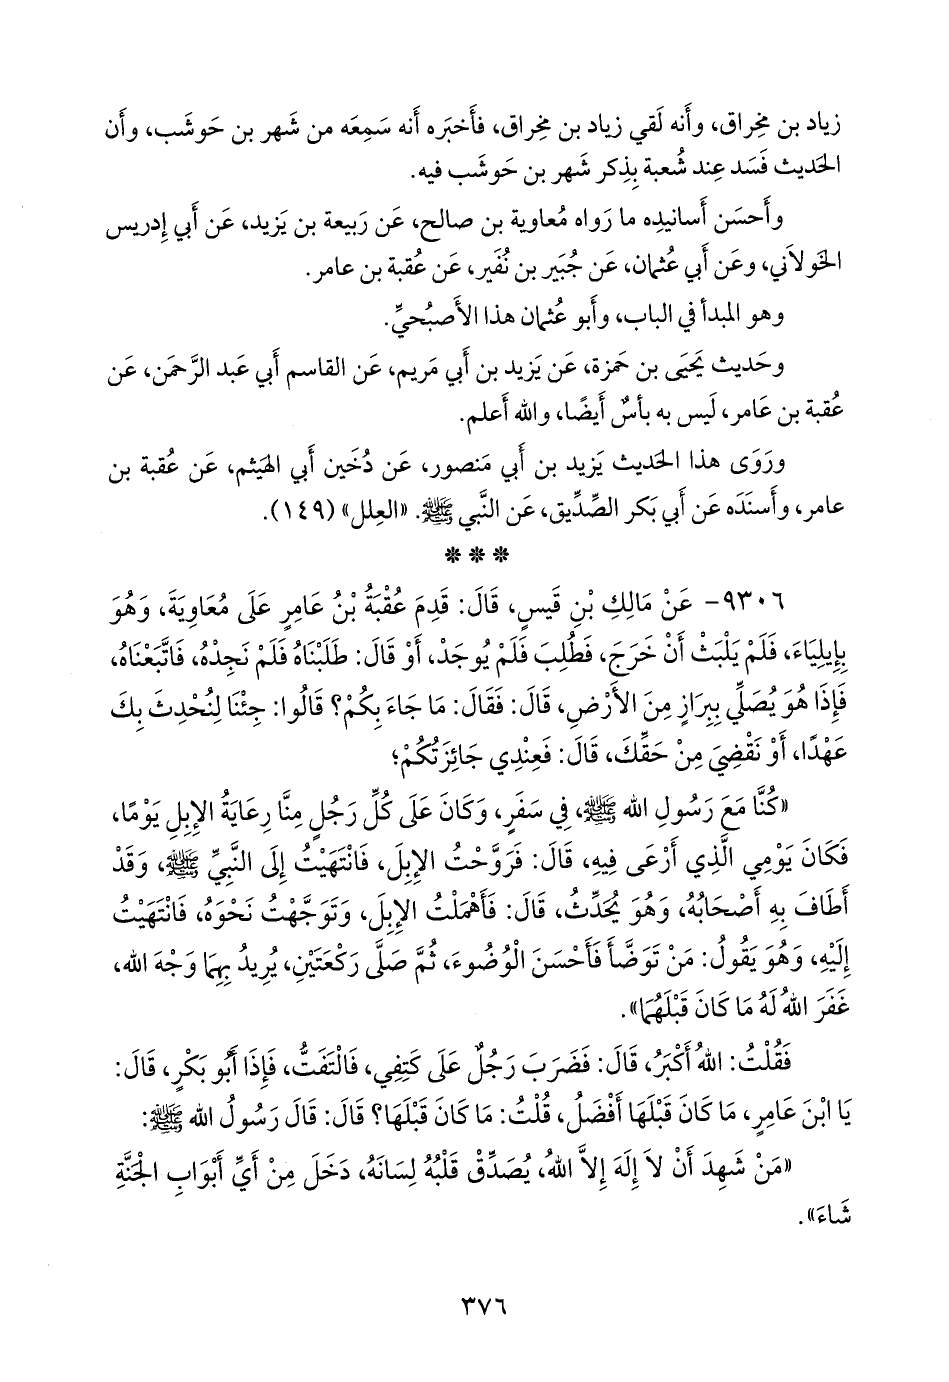 زياد بن مِخراق، وأَنه لَقي زياد بن مِخراق، فأَخبَره أنه سَمِعَه من شَهر بن حَوشَب، وأَن
الحَديث فَسَد عِند شُعبة بِذِكر شَهر بن حَوشَب فيه.
وأَحسَن أَسانيدِه ما رَواه مُعاوية بن صالح، عَن رَبيعة بن يَزيد، عَن أَبي إِدريس
الخَولاَني، وعَن أَبي عُثمان، عَن جُبَير بن نُفَير، عَن عُقبة بن عامر.
وهو المبدأ في الباب، وأَبو عُثمان هذا الأَصبُحيِّ.
وحَديث يَحيَى بن حَمزة، عَن يَزيد بن أَبي مَريم، عَن القاسم أَبي عَبد الرَّحمَن، عَن
عُقبة بن عَامر، لَيس به بأسٌ أَيضًا، والله أَعلم.
ورَوَى هذا الحَديث يَزيد بن أَبي مَنصور، عَن دُخَين أَبي الهَيثم، عَن عُقبة بن
عامر، وأَسنَدَه عَن أَبي بَكر الصِّدِّيق، عَن النَّبي ﷺ. «العِلل» (١٤٩).
* * *
٩٣٠٦- عَنْ مَالِكِ بْنِ قَيسٍ، قَالَ: قَدِمَ عُقْبَةُ بْنُ عَامِرٍ عَلَى مُعَاوِيَةَ، وَهُوَ
بِإِيلِيَاءَ، فَلَمْ يَلْبَثْ أَنْ خَرَجَ، فَطُلِبَ فَلَمْ يُوجَدْ، أَوْ قَالَ: طَلَبْنَاهُ فَلَمْ نَجِدْهُ، فَاتَّبَعْنَاهُ،
فَإِذَا هُوَ يُصَلِّي بِبِرَازٍ مِنَ الأَرْضِ، قَالَ: فَقَالَ: مَا جَاءَ بِكُمْ؟ قَالُوا: جِئْنَا لِنُحْدِثَ بِكَ
عَهْدًا، أَوْ نَقْضِيَ مِنْ حَقِّكَ، قَالَ: فَعِنْدِي جَائِزَتُكُمْ؛
«كُنَّا مَعَ رَسُولِ الله ﷺ، فِي سَفَرٍ، وَكَانَ عَلَى كُلِّ رَجُلٍ مِنَّا رِعَايَةُ الإِبِلِ يَوْمًا،
فَكَانَ يَوْمِي الَّذِي أَرْعَى فِيهِ، قَالَ: فَرَوَّحْتُ الإِبِلَ، فَانْتَهَيْتُ إِلَى النَّبِيِّ ﷺ، وَقَدْ
أَطَافَ بِهِ أَصْحَابُهُ، وَهُوَ يُحَدِّثُ، قَالَ: فَأَهْمَلْتُ الإِبِلَ، وَتَوَجَّهْتُ نَحْوَهُ، فَانْتَهَيْتُ
إِلَيْهِ، وَهُوَ يَقُولُ: مَنْ تَوَضَّأَ فَأَحْسَنَ الْوُضُوءَ، ثُمَّ صَلَّى رَكْعَتَيْنِ، يُرِيدُ بِهِمَا وَجْهَ الله،
غَفَرَ اللهُ لَهُ مَا كَانَ قَبْلَهُمَا».
فَقُلْتُ: اللهُ أَكْبَرُ، قَالَ: فَضَرَبَ رَجُلٌ عَلَى كَتِفِي، فَالْتَفَتُّ، فَإِذَا أَبُو بَكْرٍ، قَالَ:
يَا ابْنَ عَامِرٍ، مَا كَانَ قَبْلَهَا أَفْضَلُ، قُلْتُ: مَا كَانَ قَبْلَهَا؟ قَالَ: قَالَ رَسُولُ الله ﷺ:
«مَنْ شَهِدَ أَنْ لاَ إِلَهَ إِلاَّ اللهُ، يُصَدِّقُ قَلْبُهُ لِسَانَهُ، دَخَلَ مِنْ أَيِّ أَبْوَابِ الْجَنَّةِ
شَاءَ».
٣٧٦